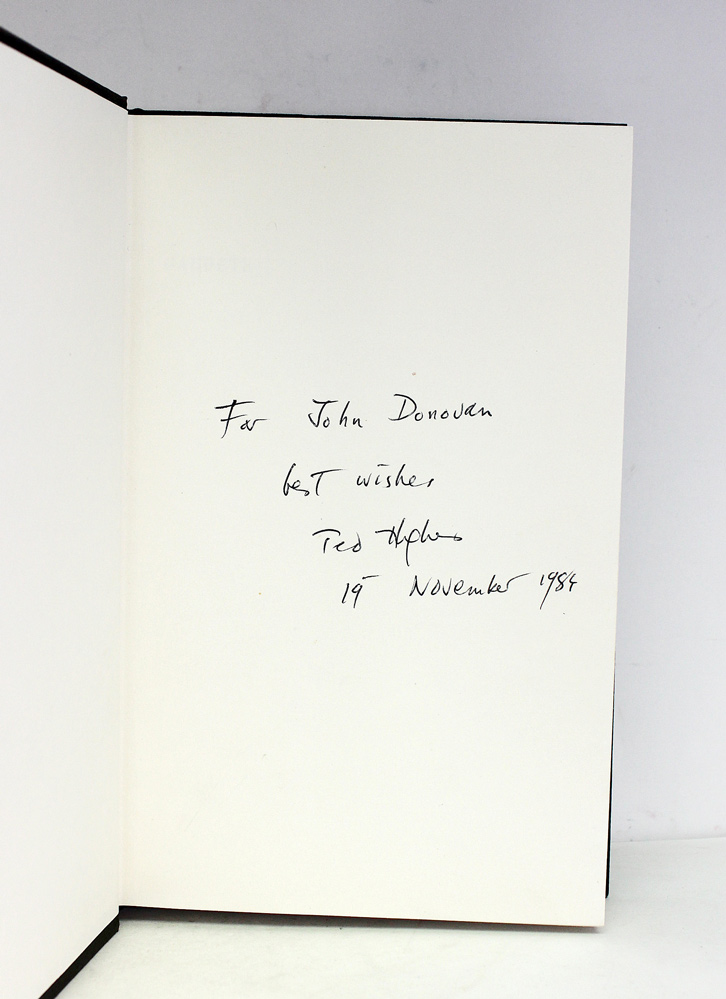 For John Donovan
best wishes
Ted Hughes
19 November 1984